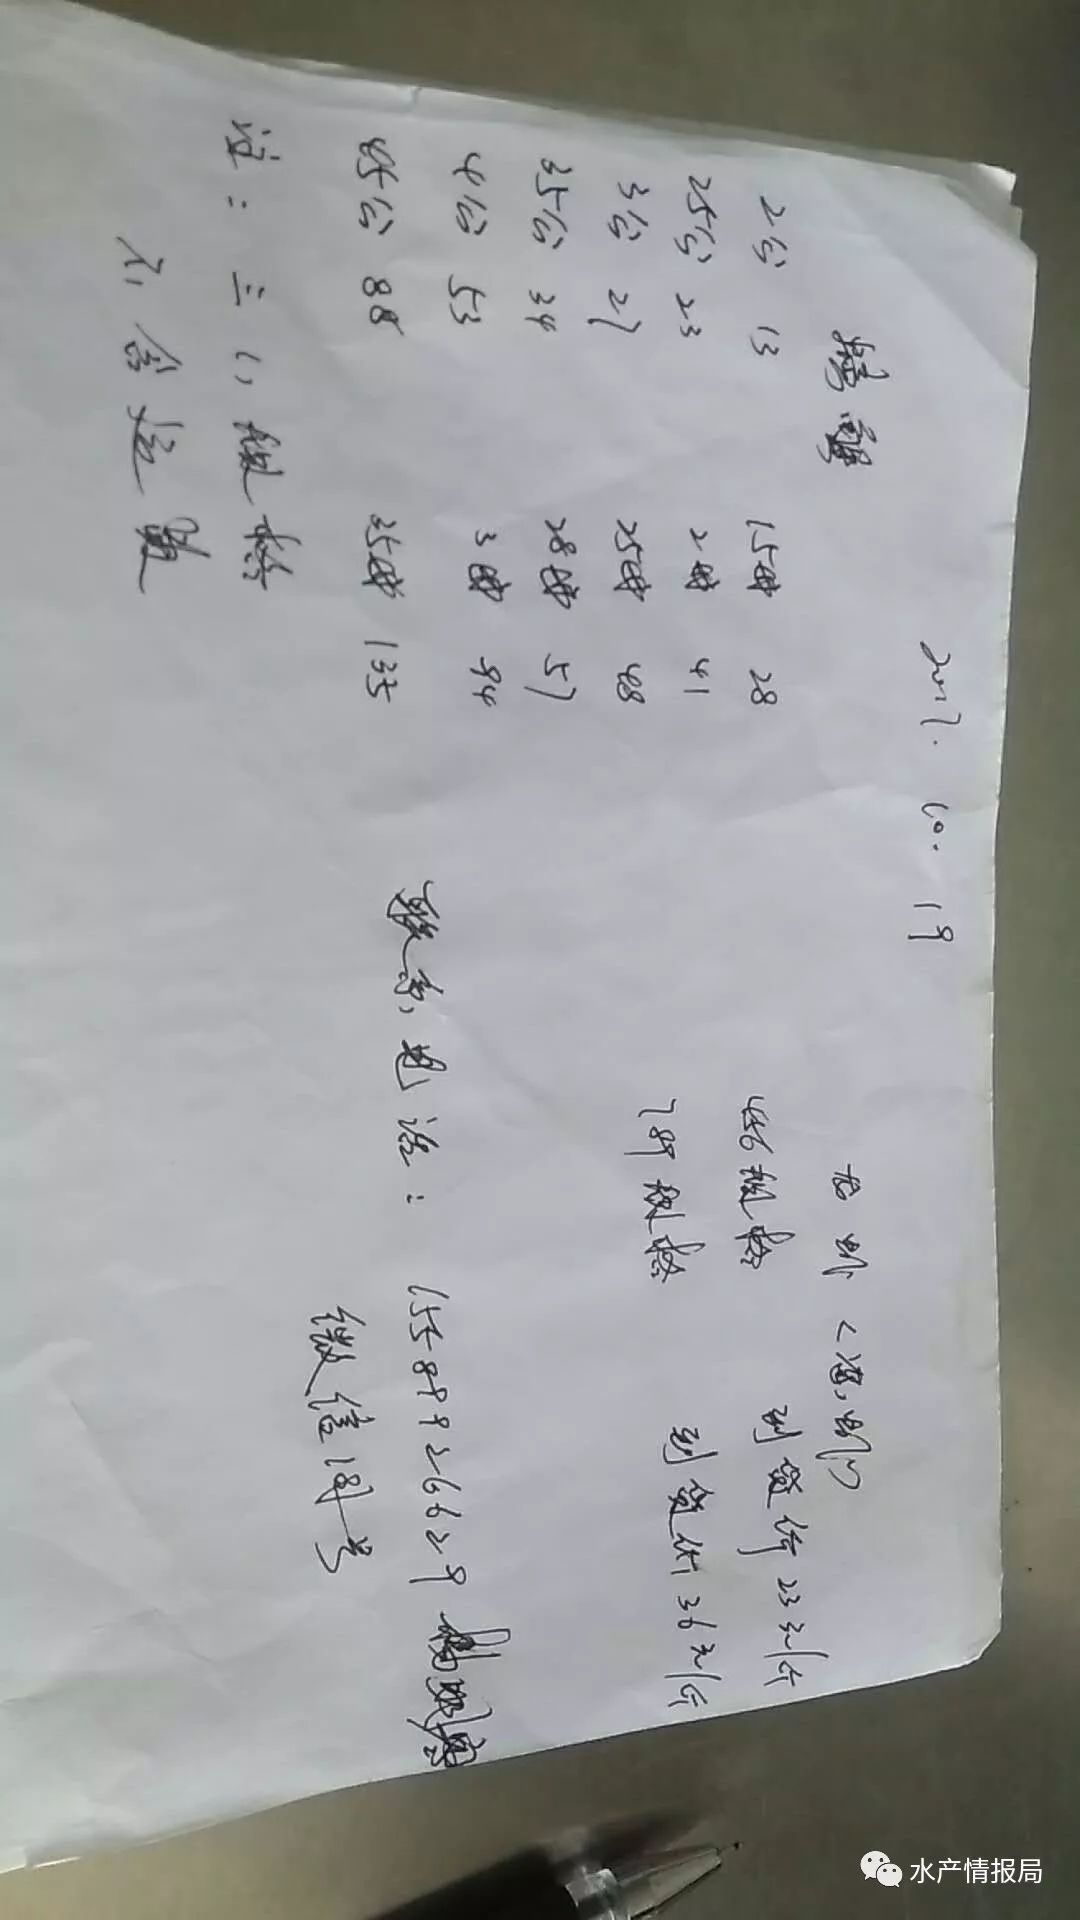 2017.10.19
螃蟹
2公 13 1.5母 28
25公 23 2母 41
3公 27 25母 48
35公 34 28母 57
4公 53 3母 94
45公 88 35母 135
注：三个规格
不含运费
456规格 到货价23元/斤
789规格 到货价36元/斤
联系电话：15589926629
微信同号
水产情报局